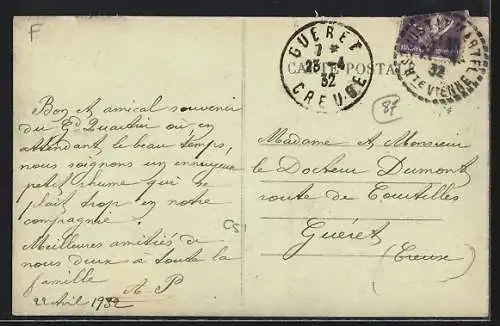 F
GUERET
7 *
23 - 4
32
CREUSE
CARTE POSTALE
ST JUST LE MARTEL
32
HTE VIENNE
87
Bon & amical souvenir
du Gd Quartier où, en
attendant le beau temps,
nous soignons un ennuyeux
petit rhume qui se
plait trop en notre
compagnie.
Meilleures amitiés de
nous deux à toute la
famille
A-P
22 Avril 1932
Madame & Monsieur
le Docteur Dumont
route de Courtilles
Guéret
(Creuse)